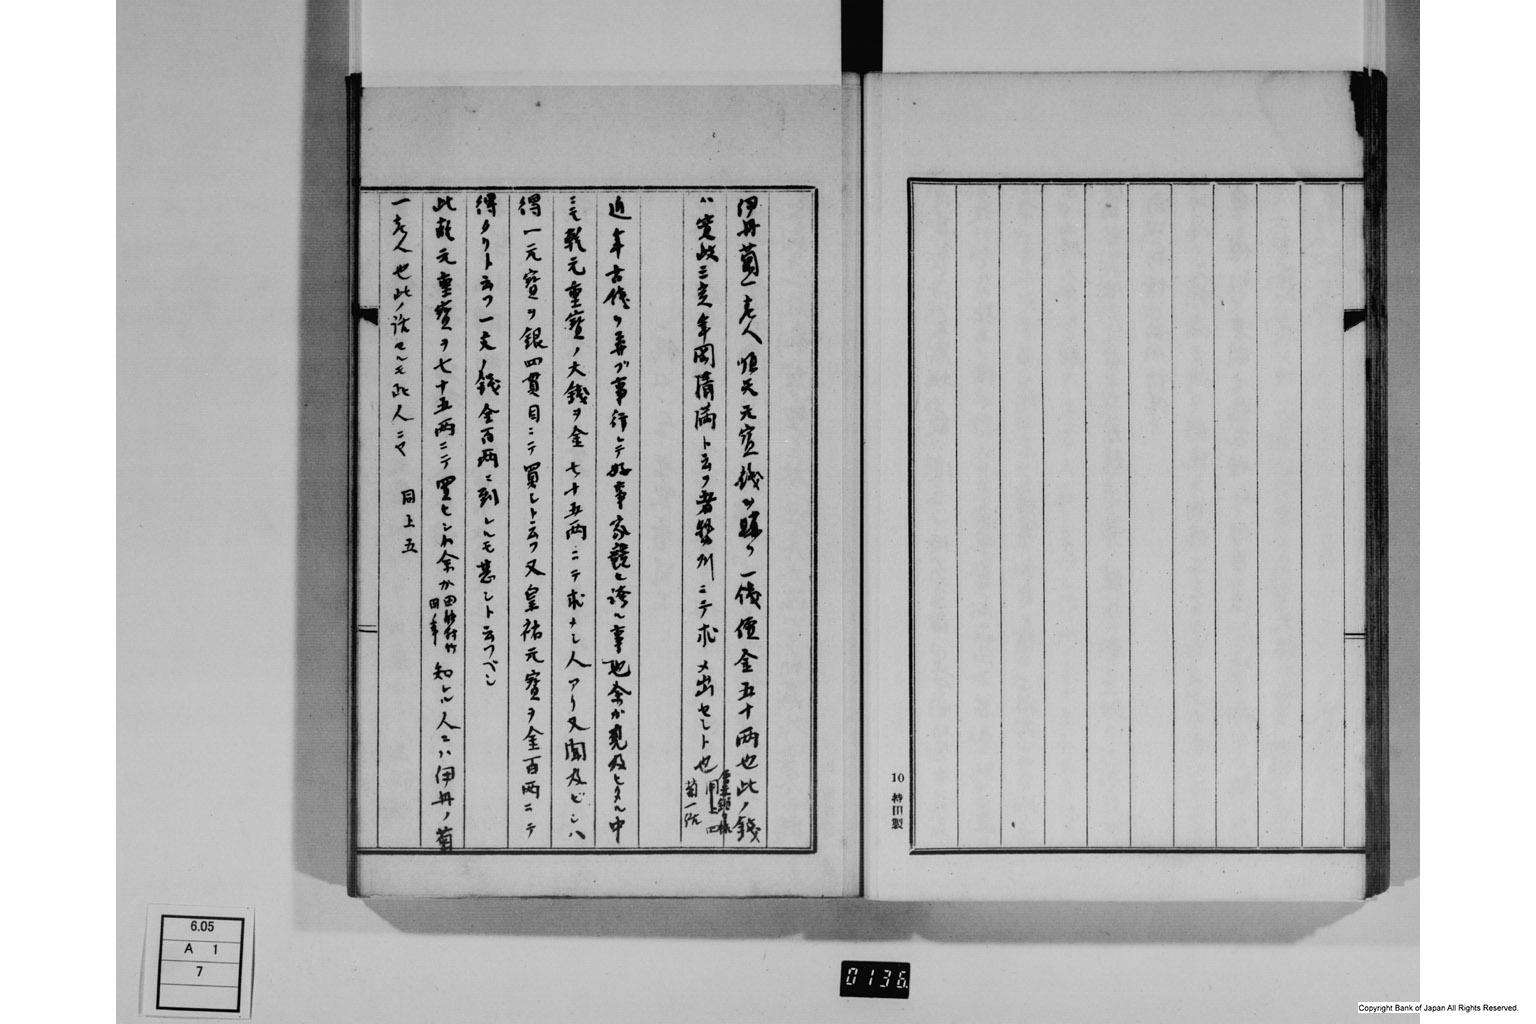 10 特田製
伊丹菊一老人順天元宝銭ヲ購フ一銭價金五十両也此ノ銭
ハ寛政三定年岡清満ト云フ者勢州ニテ求メ出セシト也
同上四
菊一佐
近年古銭ヲ弄ブ事行レテ好事家競ヒ誇ル事也余ガ見及ヒタル中
ニモ乾元重寶ノ大銭ヲ金七十五両ニテ求メシ人アリ又聞及ビシハ
得一元寶ヲ銀四貫目ニテ買シト云フ又皇祐元寶ヲ金百両ニテ
得タリト云フ一文ノ銭金百両ニ到レルモ甚シト云フベシ
此乾元重寶ヲ七十五両ニテ買ヒシハ余カ知レル人ニハ伊丹ノ菊
一老人也此ノ話セルモ此人ニヤ 同上五
6.05
A 1
7
0136
Copyright Bank of Japan All Rights Reserved.